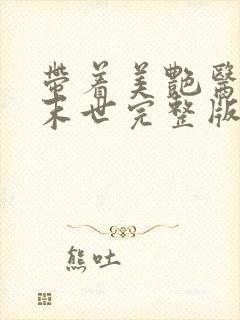 帶着美艷醫
末世完整版
熊吐